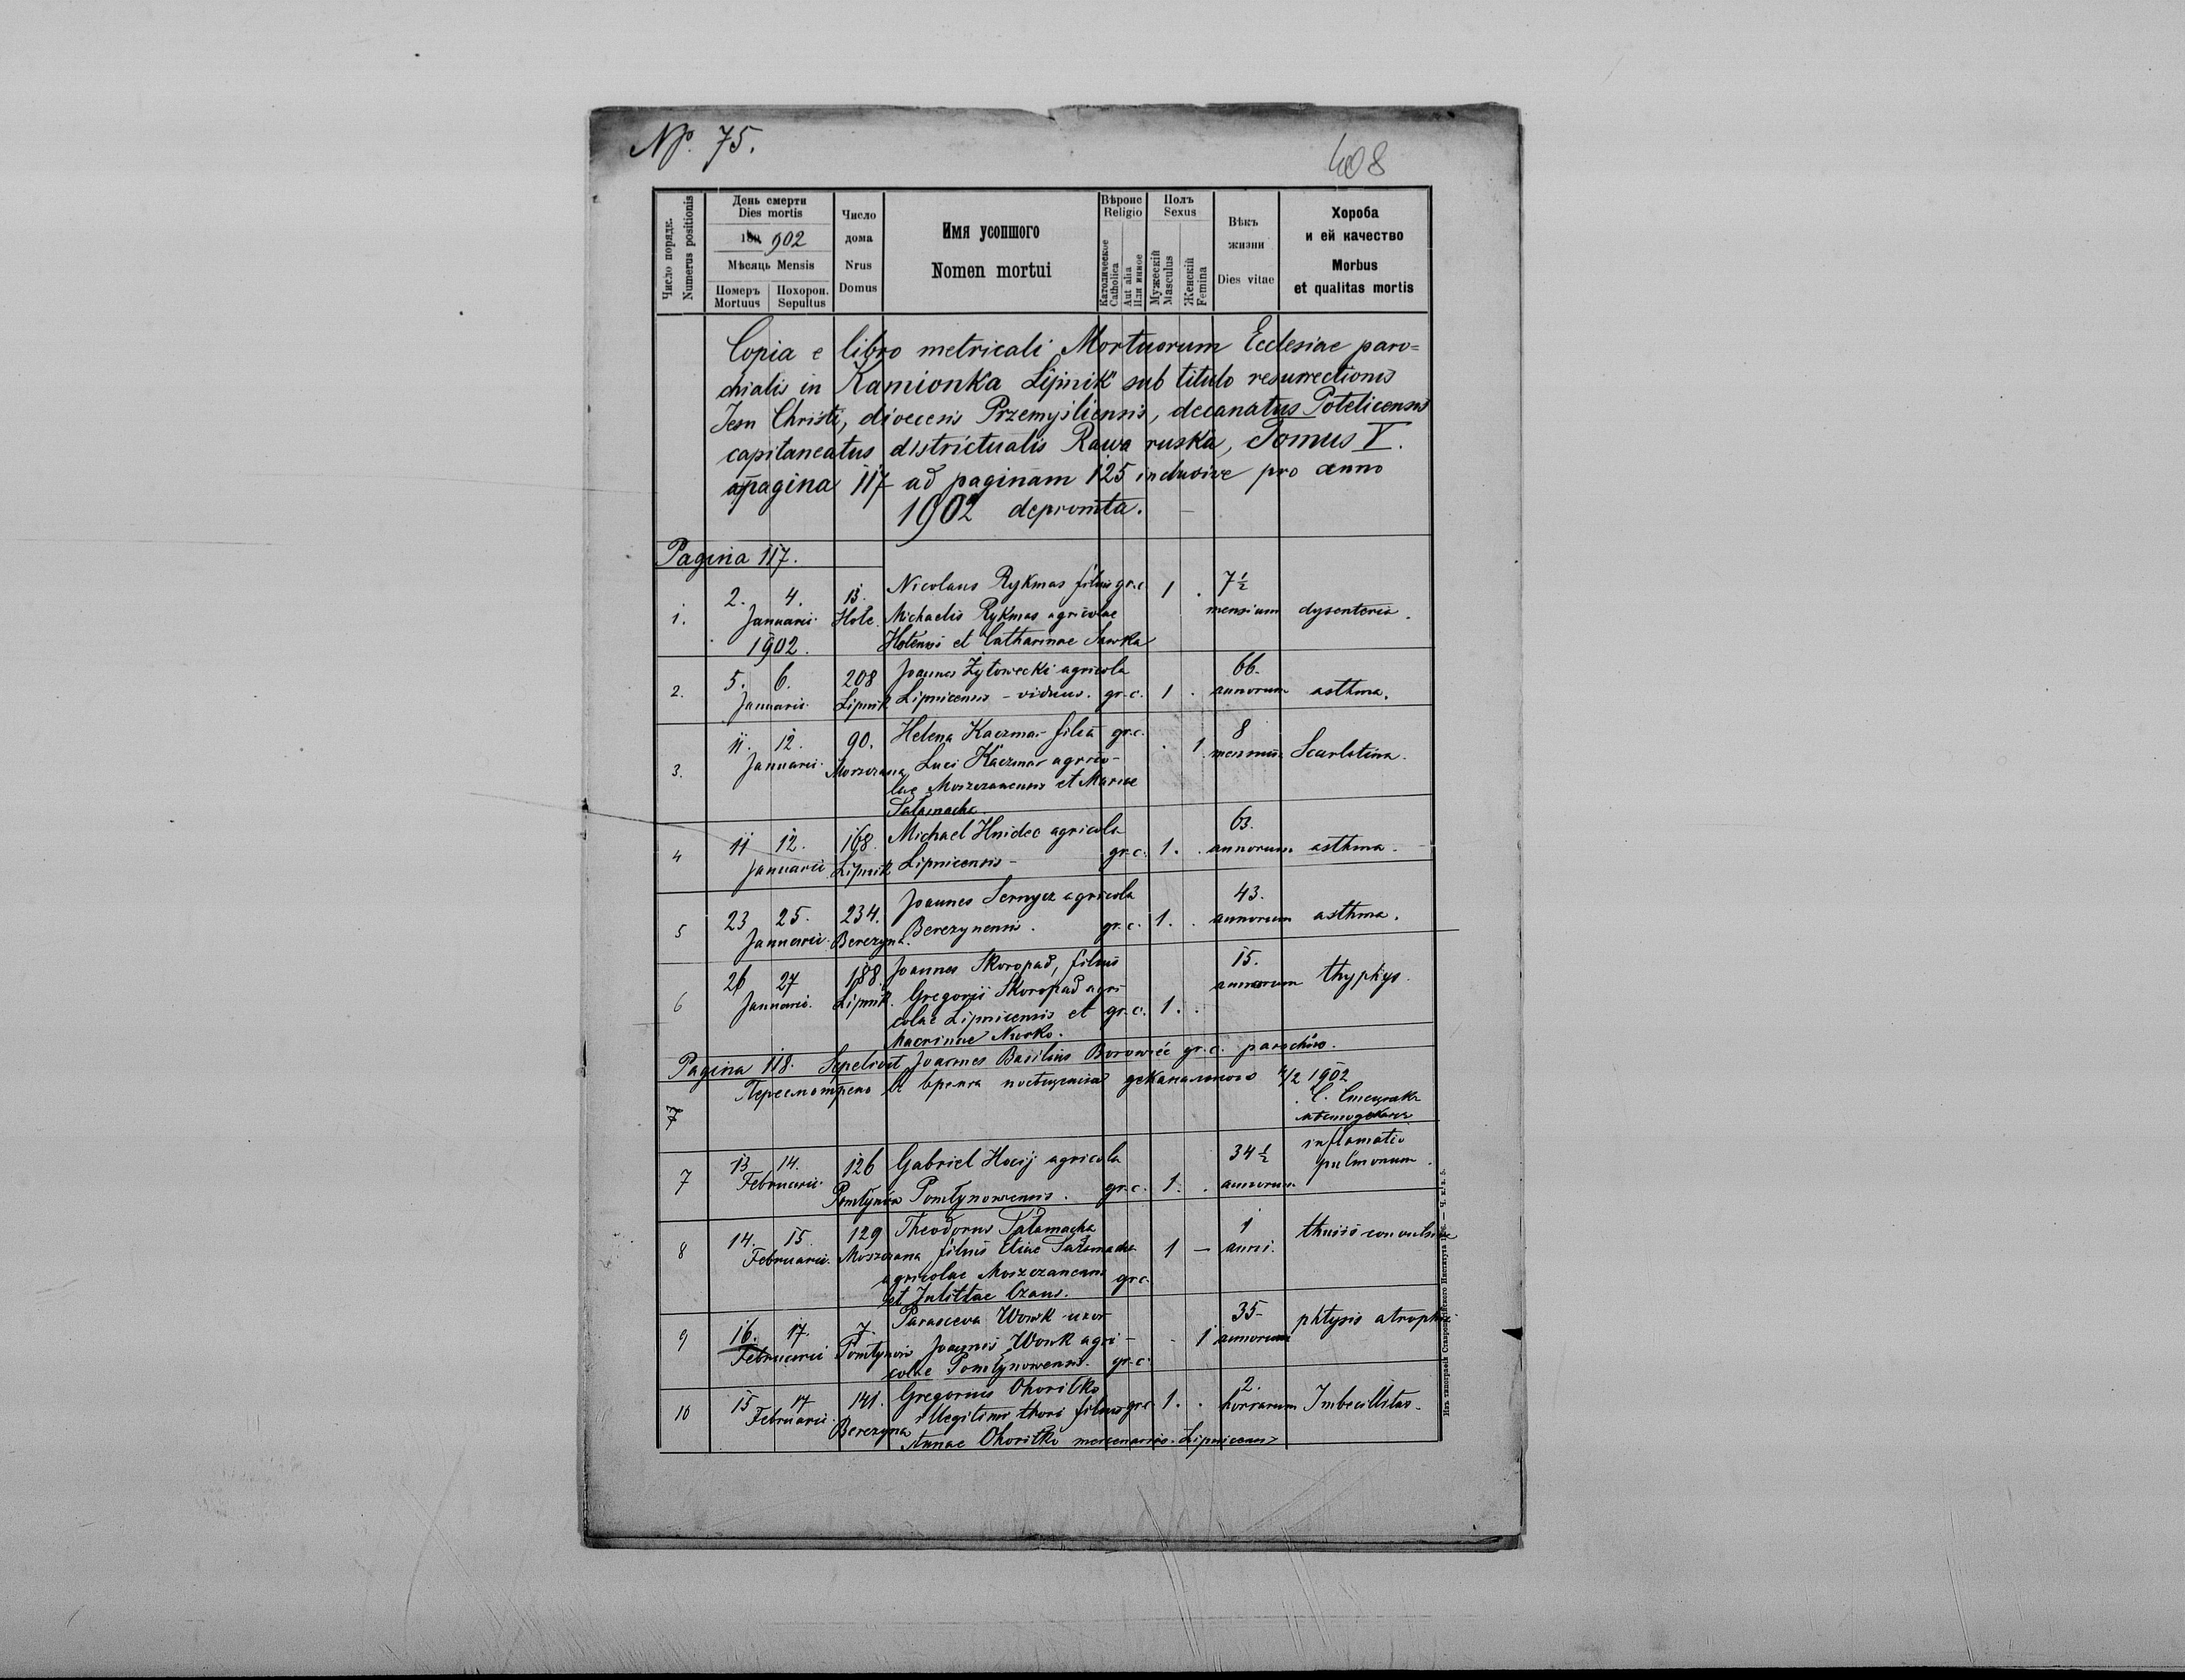 No. 75.
408
Число порядк.
Numerus positionis
День смерти
Dies mortis
902
Мѣсяць Mensis
Померъ Похорон.
Mortuus Sepultus
Число
дома
Nrus
Domus
Имя усопшого
Nomen mortui
Вѣроис
Religio
Католическое
Catholica
Aut alia
Или инное
Полъ
Sexus
Мужескій
Masculus
Женскій
Femina
Вѣкъ
жизни
Dies vitae
Хороба
и ей качество
Morbus
et qualitas mortis
Copia e libro metricali Mortuorum Ecclesiae paro=
chialis in Kamionka Lipnik sub titulo resurrectionis
Jesu Christi, diocecis Przemysliensis, decanatus Potelicensis
capitaneatus districtualis Rawa ruska, Tomus V.
a pagina 117 ad paginam 125 inclusive pro anno
1902 depromta.
Pagina 117.
1. 2. 4. 13. Nicolaus Rykmas filius gr.c. 1 . 7½
Januarii Hole. Michaelis Rykmas agricolae mensium dysenteria.
1902. Holensis et Catharinae Sawka
2. 5. 6. 208 Joannes Żytowiecki agricola 66.
Januarii Lipnik Lipnicensis - viduus. gr.c. 1 . annorum asthma.
3. 11. 12. 90. Helena Kaczmar filia gr.c. . 1 8
Januarii Moszczana Luci Kaczmar agrico- mensium Scarlatina.
lae Moszczanensis et Mariae
Sałamacha
4 11 12. 168. Michael Hnidec agricola 63.
Januarii Lipnik Lipnicensis - gr.c. 1. . annorum asthma.
5 23 25. 234. Joannes Sernycz agricola 43.
Januarii Berezyna. Berezynensis. gr.c. 1. . annorum asthma.
6 26 27 188. Joannes Skoropad, filius 15.
Januarii Lipnik. Gregorii Skoropad agri- annorum thyphys.
colae Lipnicensis et gr.c. 1. .
Macrinae
Pagina 118. Sepelivit Joannes Basilius Borowiec gr.c. parochus.
Пересмотрено въ время посѣщенія деканального 4/2 1902
7
7 13 14. 126 Gabriel Hocij agricola 34½ inflamatio
Februarii Pomłynów Pomłynowensis. gr.c. 1. . annorum pulmonum.
8 14. 15 129 Theodorus Sałamacha 1 thusis convulsiva
Februarii. Moszczana filius Eliae Sałamacha 1 - anni.
agricolae Moszczanensis gr.c.
et Julittae Czaus.
9 16. 17. 7. Parasceva Wowk uxor 35- phtysis atrophia
Februarii Pomłynów Joannis Wowk agri- - 1 annorum
colae Pomłynowensis. gr.c.
10 15 17 141. Gregorius Ohoritko 2.
Februarii. Berezyna illegitimi thori filius gr.c. 1. . horrarum Imbecillitas.
Annae Ohoritko mercenariae Lipnicensis